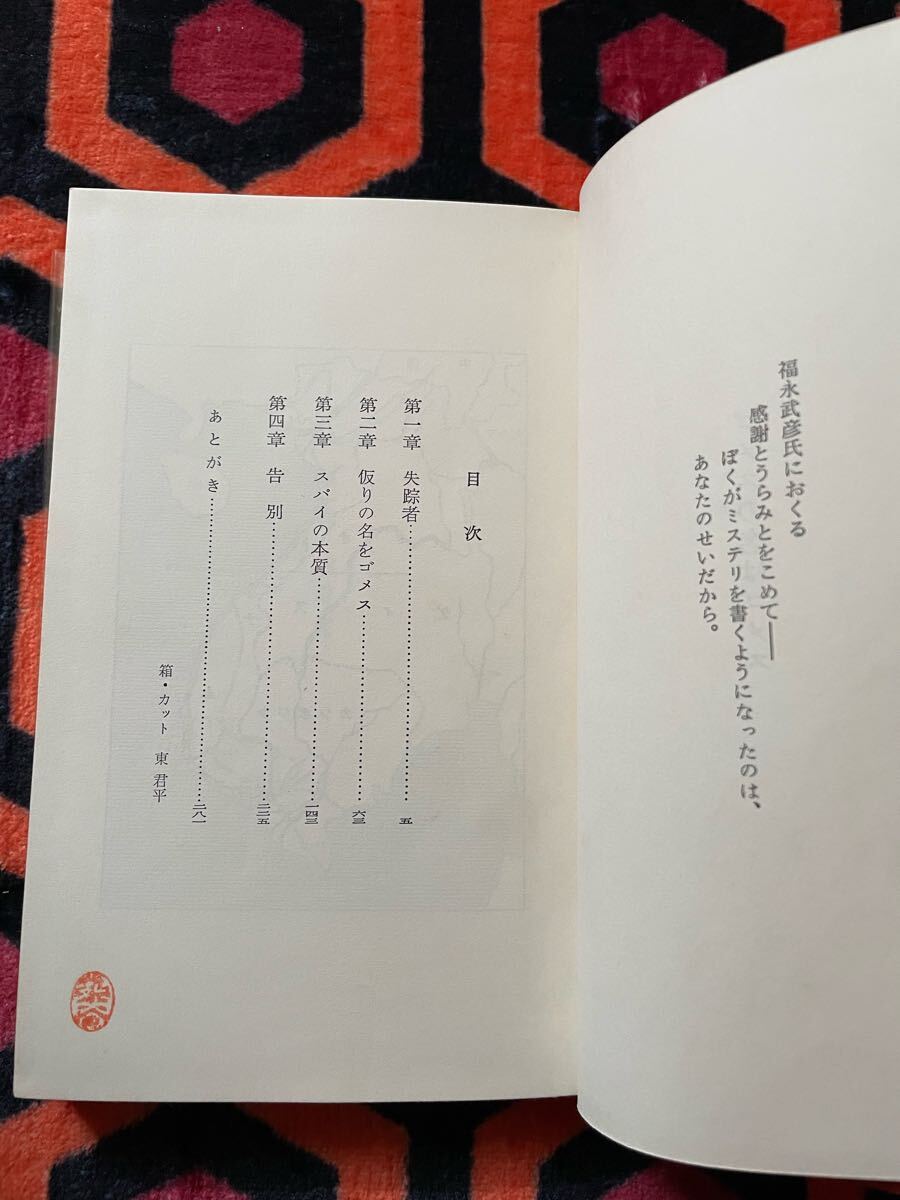 福永武彦氏におくる
感謝とうらみとをこめて――
ぼくがミステリを書くようになったのは、
あなたのせいだから。
目次
第一章 失踪者……………………五
第二章 仮りの名をゴメス……………………六三
第三章 スパイの本質……………………一四三
第四章 告別……………………二二五
あとがき……………………二八一
箱・カット 東 君平